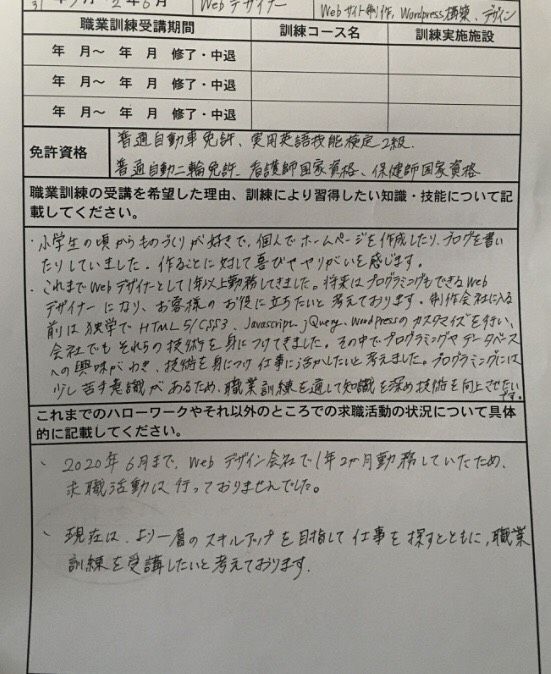 31 年 2年6月 Webデザイナー Webサイト制作、Wordpress構築、デザイン
職業訓練受講期間 訓練コース名 訓練実施施設
年 月～ 年 月 修了・中退
年 月～ 年 月 修了・中退
年 月～ 年 月 修了・中退
免許資格
普通自動車免許、実用英語技能検定2級、
普通自動二輪免許、看護師国家資格、保健師国家資格
職業訓練の受講を希望した理由、訓練により習得したい知識・技能について記
載してください。
・小学生の頃からものづくりが好きで、個人でホームページを作成したり、ブログを書い
たりしていました。作ることに対して喜びややりがいを感じます。
・これまでWebデザイナーとして1年以上勤務してきました。将来はプログラミングもできるWeb
デザイナーになり、お客様のお役に立ちたいと考えております。制作会社に入る
前は独学でHTML5/CSS3、Javascript、jQuery、Wordpressのカスタマイズを行い、
会社でもそれらの技術を身につけてきました。その中でプログラミングやデータベース
への興味がわき、技術を身につけ仕事に活かしたいと考えました。プログラミングには
少し苦手意識があるため、職業訓練を通して知識を深め技術を向上させたい
です。
これまでのハローワークやそれ以外のところでの求職活動の状況について具体
的に記載してください。
、2020年6月まで、Webデザイン会社で1年2か月勤務していたため、
求職活動は行っておりませんでした。
、現在は、より一層のスキルアップを目指して仕事を探すとともに、職業
訓練を受講したいと考えております。